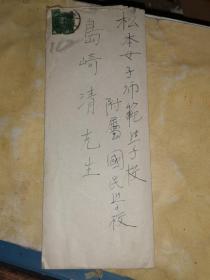 松本女子師範学校
附属國民学校
島崎清先生
10